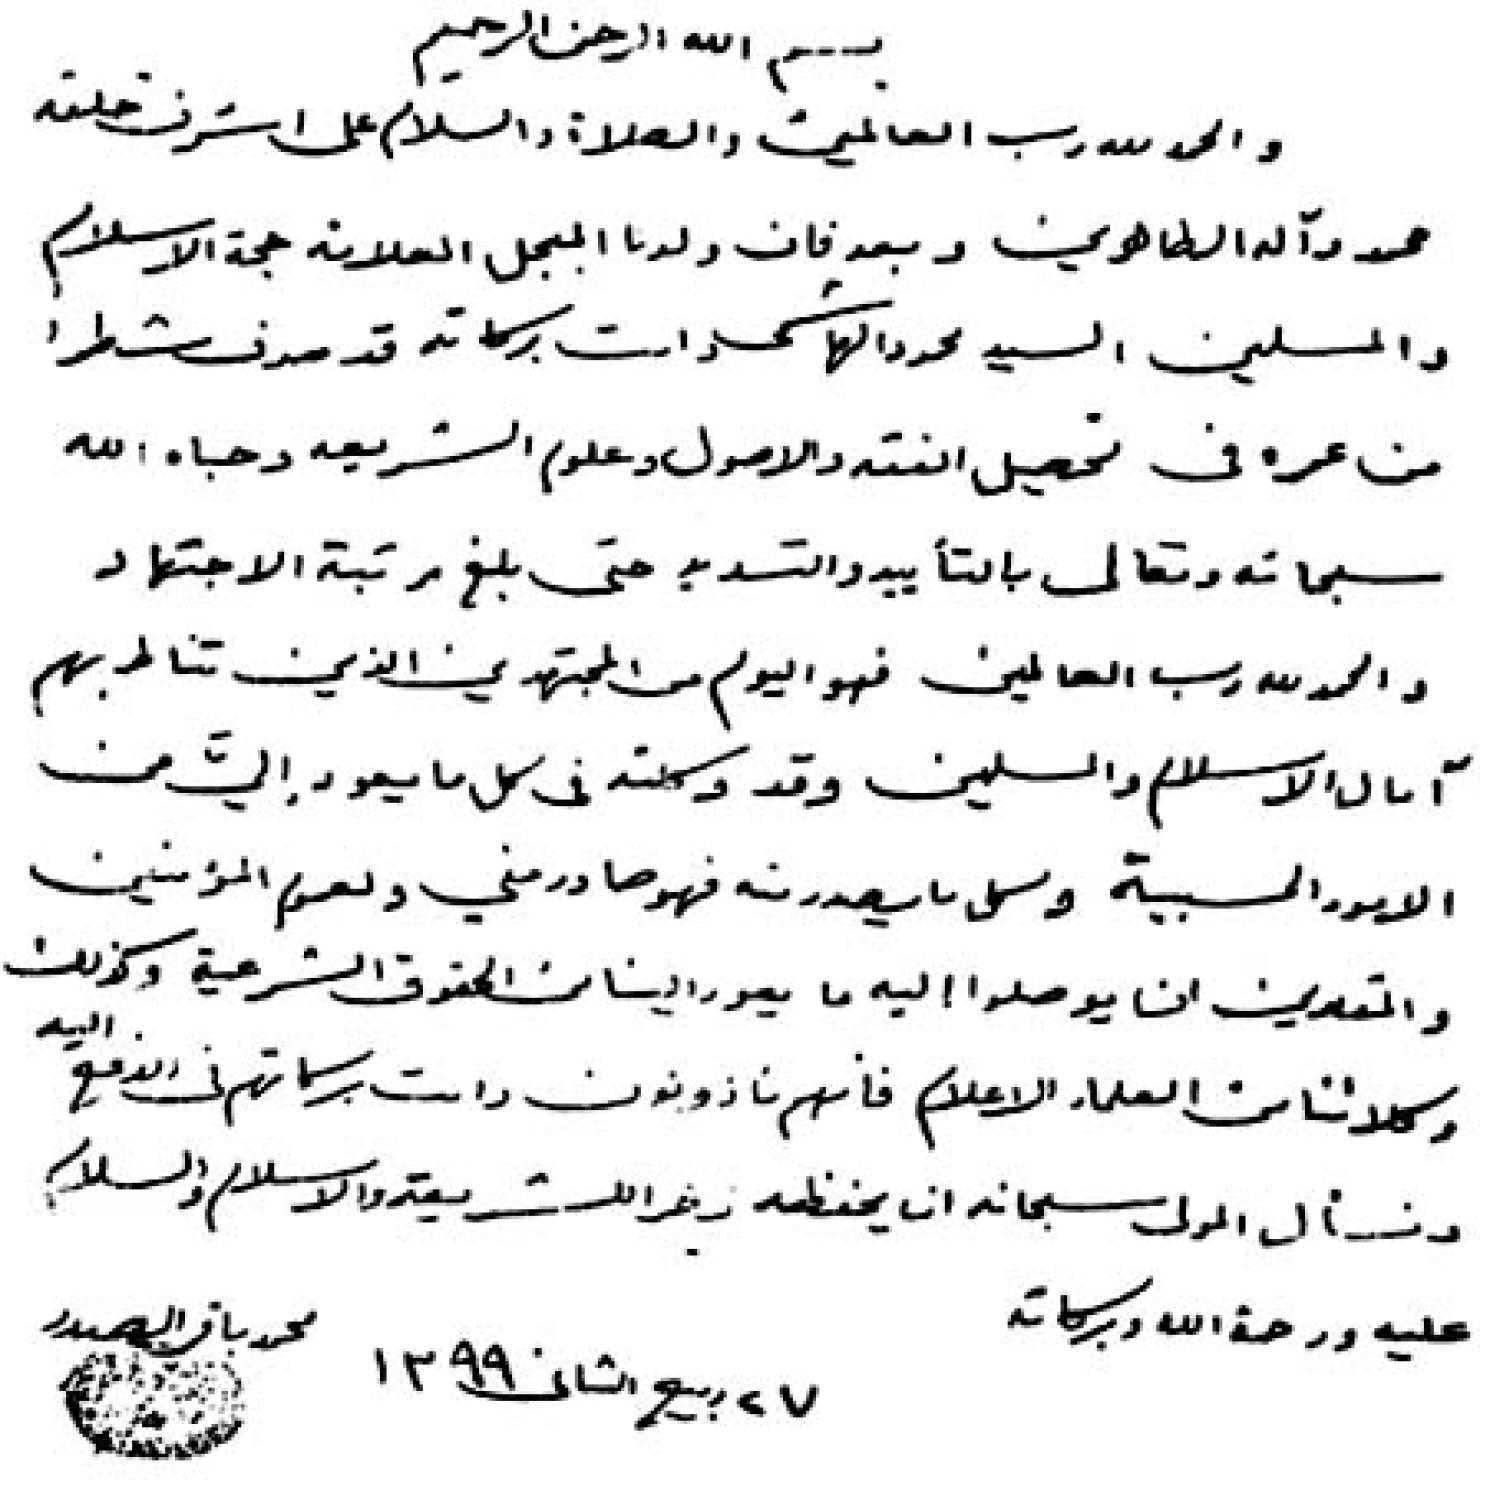 بسم الله الرحمن الرحيم
والحمد لله رب العالمين والصلاة والسلام على اشرف خلقه
محمد وآله الطاهرين وبعد فان ولدنا المبجل العلامه حجة الاسلام
والمسلمين السيد محمود الهاشمي دامت بركاته قد صرف شطرا
من عمره في تحصيل الفقه والاصول وعلوم الشريعه وحباه الله
سبحانه وتعالى بالتأييد والتسديد حتى بلغ مرتبة الاجتهاد
والحمد لله رب العالمين فهو اليوم من المجتهدين الذين تناط بهم
آمال الاسلام والمسلمين وقد وكلته في كل ما يعود إليَّ من
الامور الحسبية وكل ما يصدر منه فهو صادر مني ولعموم المؤمنين
والمقلدين ان يوصلوا إليه ما يعود الينا من الحقوق الشرعية وكذلك
وكلائنا من العلماء الاعلام فأنهم مأذونون دامت بركاتهم في الدفع اليه
ونسأل المولى سبحانه ان يحفظه ذخرا للشريعة والاسلام والسلام
عليه ورحمة الله وبركاته
٢٧ ربيع الثاني ١٣٩٩
محمد باقر الصدر